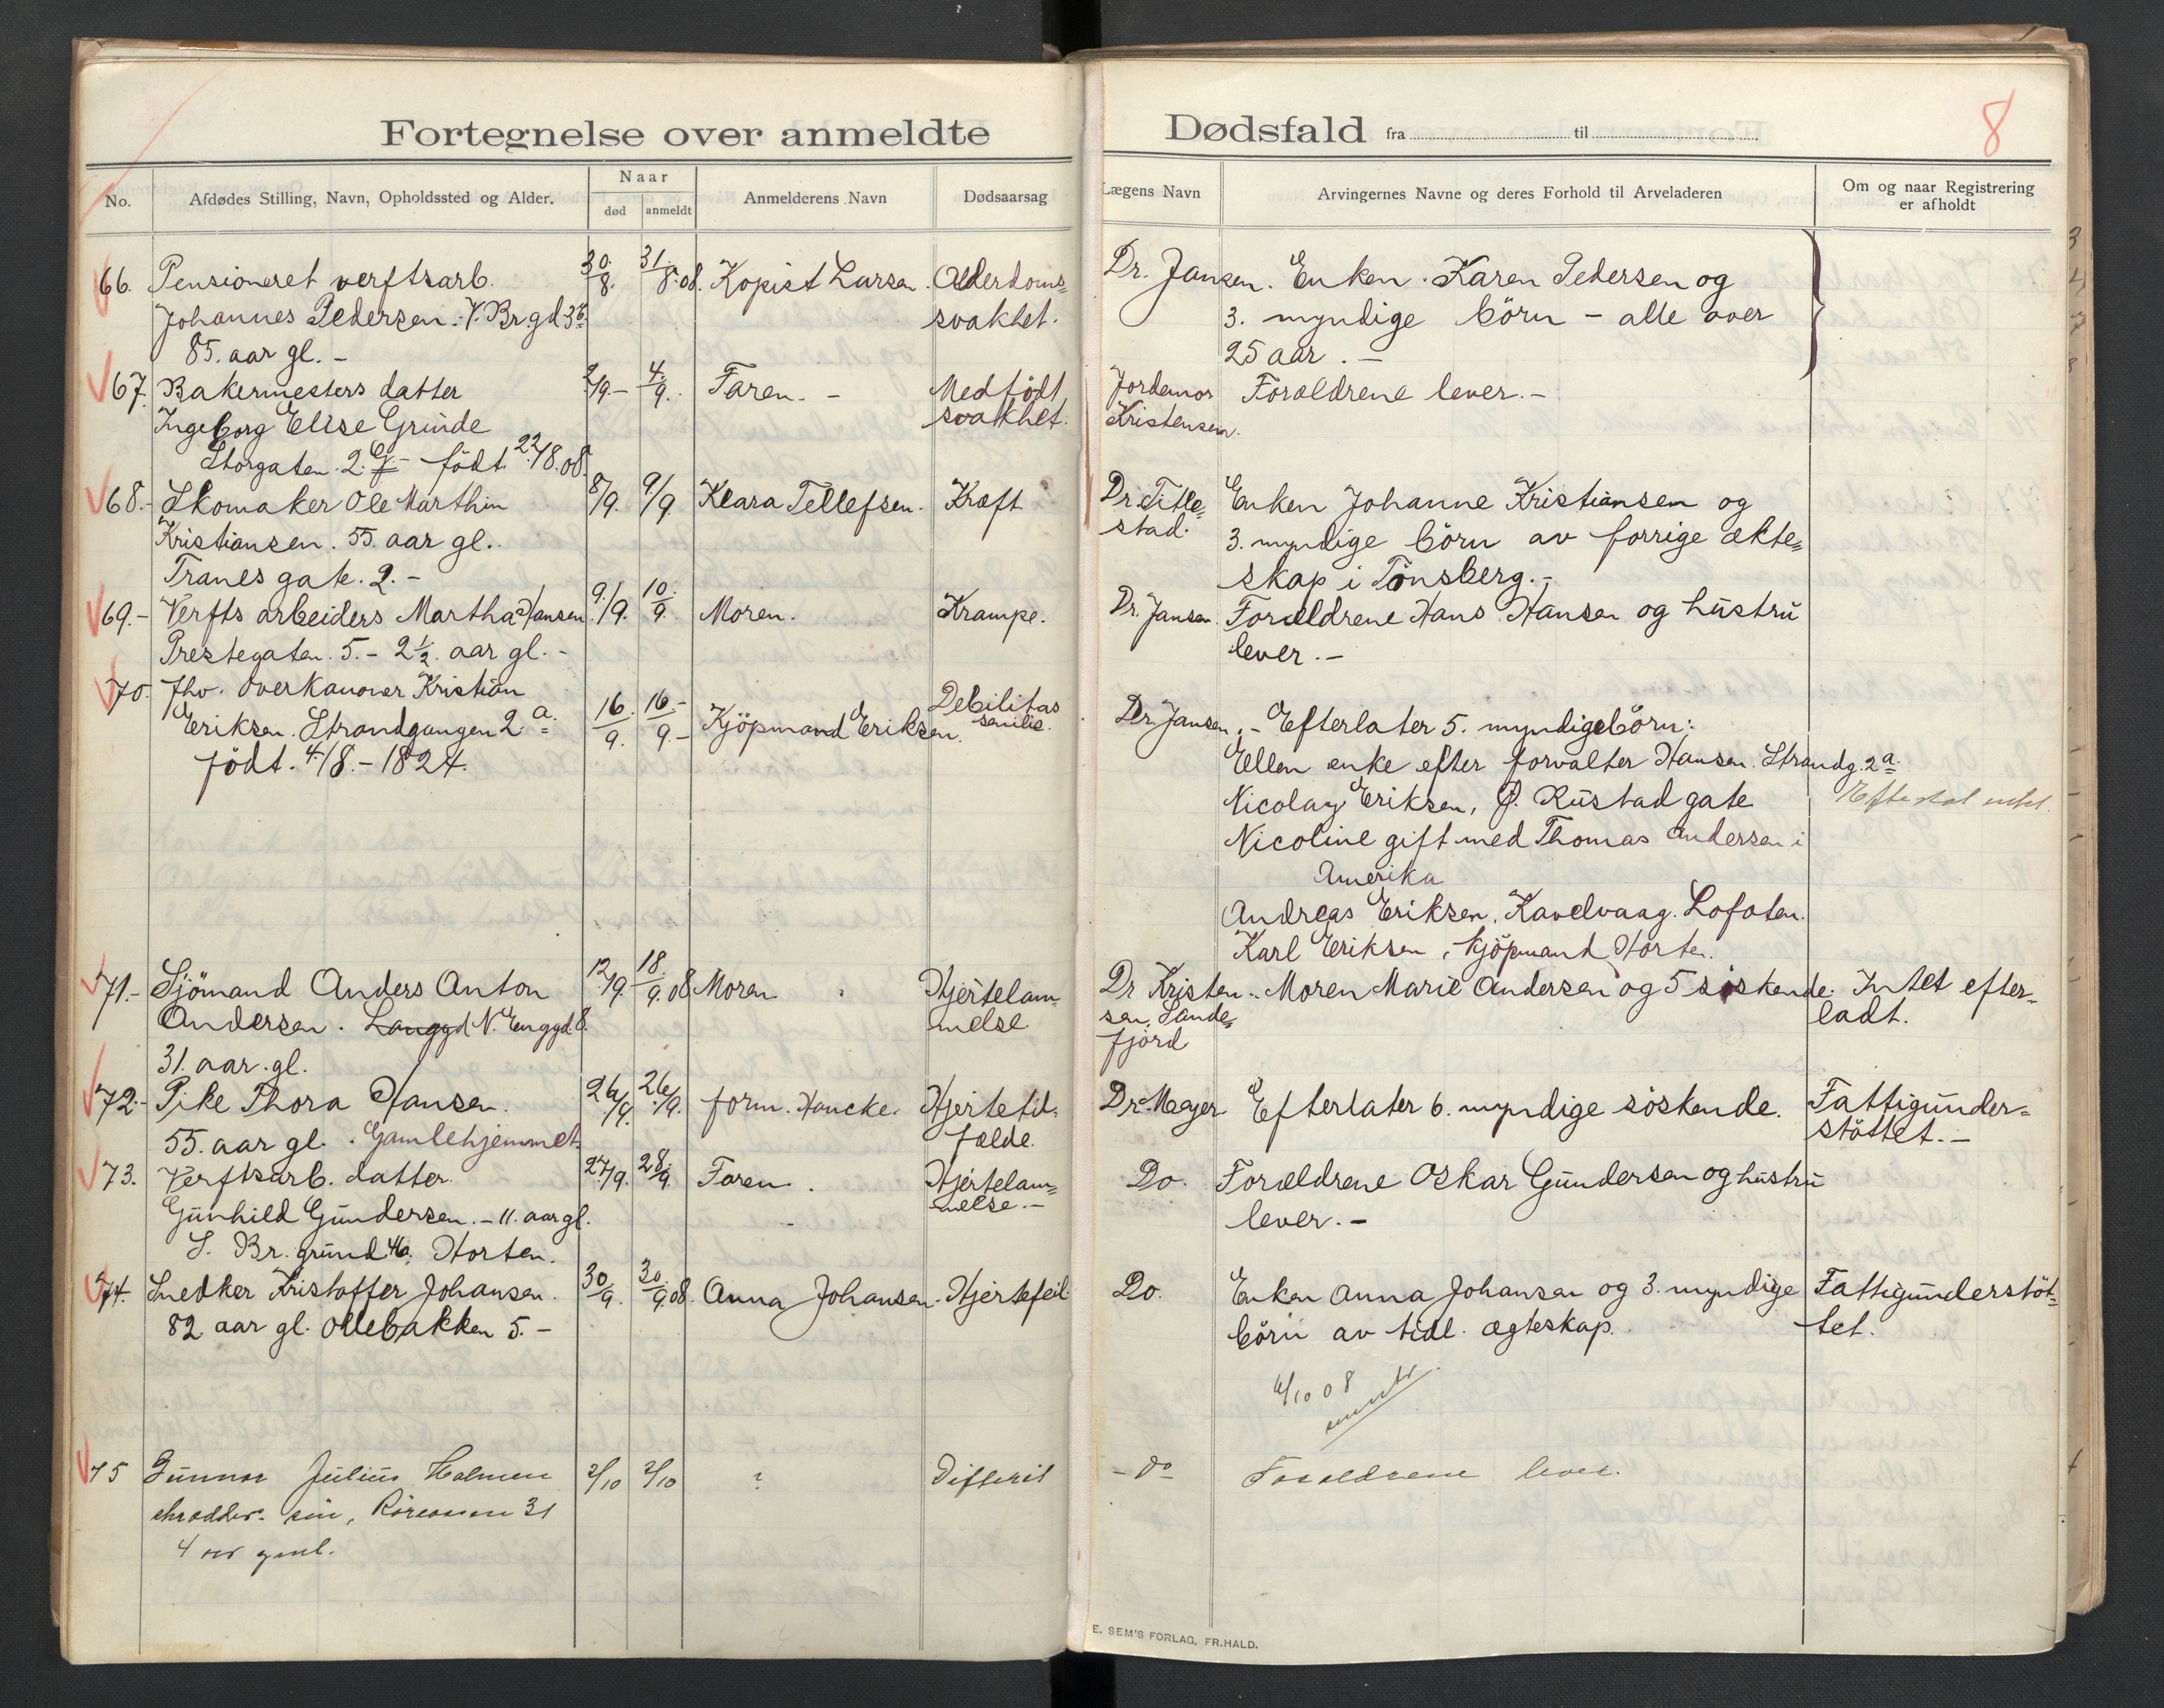 Fortegnelse over anmeldte
Dødsfald fra til
8
No.
Afdødes Stilling, Navn, Opholdssted og Alder.
Naar
død
anmeldt
Anmelderens Navn
Dødsaarsag
Lægens Navn
Arvingernes Navne og deres Forhold til Arveladeren
Om og naar Registrering
er afholdt
66. Pensioneret verftsarb. 30/8. 31/8.08. Kopist Larsen. Alderdoms= Dr. Jansen. Enken Karen Pedersen og
Johannes Pedersen. V. Br.gd 36 svakhet. 3. myndige börn - alle over
85. aar gl. - 25 aar. -
67. Bakermesters datter 2/9.- 4/9. Faren. - Medfödt Jordemor Forældrene lever. -
Ingeborg Elise Grinde svakhet. Kristensen.
Storgaten. 2. - födt 22/8.08.
68.- Skomaker Ole Marthin 8/9. 9/9 Klara Tellefsen. Kræft Dr. Title= Enken Johanne Kristiansen og
Kristiansen. 55. aar gl. stad. 3. myndige börn av forrige ækte=
Tranes gate. 2. - skap i Tönsberg. -
69.- Verfts arbeiders Martha Hansen 9./9. 10/9. Moren. Krampe. Dr. Jansen. Forældrene Hans Hansen og hustru
Prestegaten. 5. - 2 1/2. aar gl. - lever. -
70. fhv. overkanoner Kristian 16/9. 16/9.- Kjöpmand Eriksen. Debilitas senilis. Dr. Jansen. - Efterlater 5. myndige börn:
Eriksen. Strandgangen 2 a. Ellen enke efter forvalter Hansen. Strandg. 2 a.
födt. 4/8. - 1824. Nicolay Eriksen, P. Rustad gate
Nicoline gift med Thomas Andersen i
Amerika
Andreas Eriksen, Kavelvaag. Lofoten.
Karl Eriksen, kjöpmand Horten.
71.- Sjömand Anders Anton 12/9. 18/9.08 Moren Hjertelam= Dr Kristen= Moren Marie Andersen og 5 söskende. Intet efter=
Andersen. Langgd N. Enggd 8. melse sen, Sande= ladt.
31. aar. gl. fjord
72.- Pike Thora Hansen. 26/9. 26/9. form. Hancke. Hjertetil= Dr. Meyer Efterlater 6. myndige söskende. Fattigunder=
55. aar gl. Gamlehjemmet fælde. stöttet. -
73. Verftsarb. datter 27/9. 28/9. Faren. Hjertelam= Do. Forældrene Oskar Gundersen og hustru
Gunhild Gundersen. - 11. aar gl. melse. - lever. -
S. Br. grund 46. Horten.
74. Snedker Kristoffer Johansen. 30/9. 30/9.08. Anna Johansen. Hjertefeil Do. Enken Anna Johansen og 3. myndige Fattigunderstöt=
82. aar gl. Ollebakken 5. - börn av tidl. ægteskap. tet.
6/10 08
75 Gunnar Julius Holmen 2/10 2/10 ? Difterit - do Forældrene lever.
31
4 aar gml.
E. SEM'S FORLAG, FR.HALD.